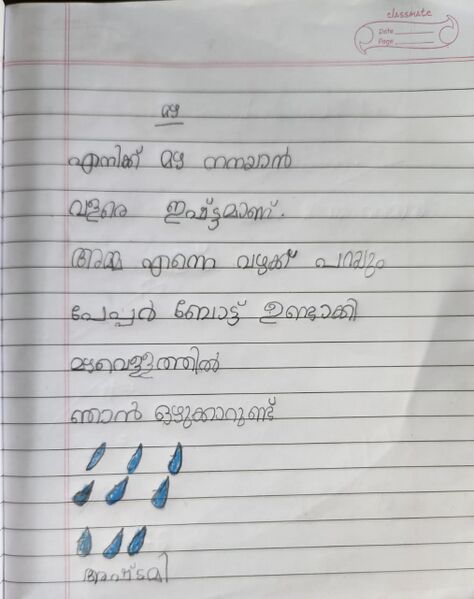 classmate
Date
Page
മഴ
എനിക്ക് മഴ നനയാൻ
വളരെ ഇഷ്ട്ടമാണ്.
അമ്മ എന്നെ വഴക്ക് പറയും
പേപ്പർ ബോട്ട് ഉണ്ടാക്കി
മഴവെള്ളത്തിൽ
ഞാൻ ഒഴുക്കാറുണ്ട്